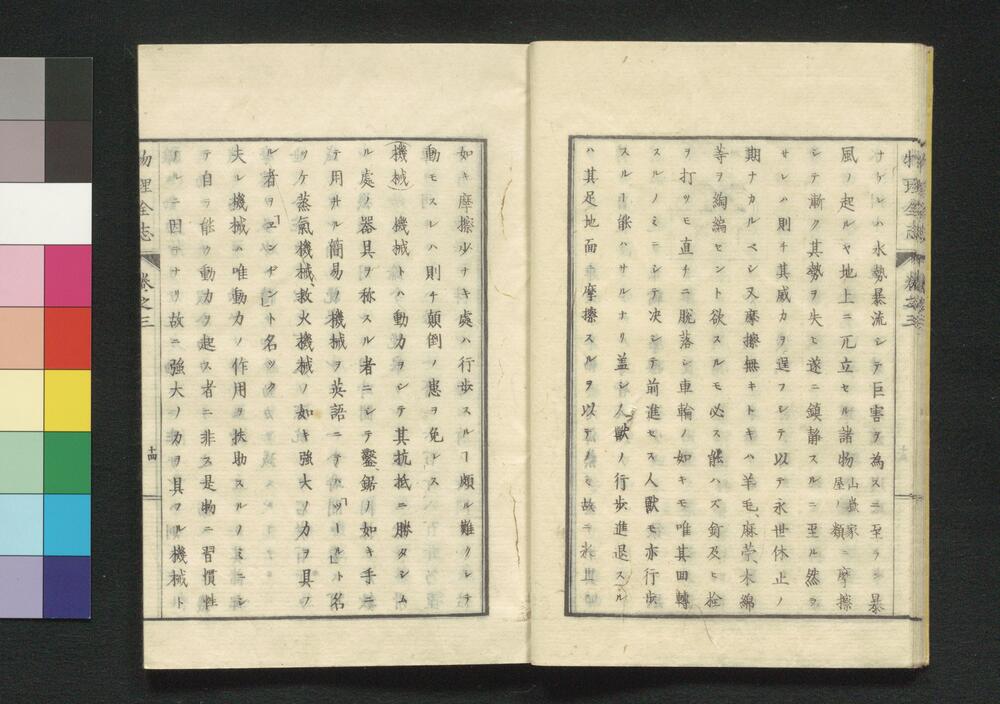 ナケレハ水勢暴流シテ巨害ヲ為スニ至ラシ暴
風ノ起ルヤ地上ニ兀立セル諸物山嶽家屋ノ類ニ摩擦
シテ漸ク其勢ヲ失ヒ遂ニ鎮静スルニ至ル然ラ
サレハ則チ其威力ヲ逞フシテ以テ永世休止ノ
期ナカルベシ又摩擦無キトキハ羊毛、麻苧、木綿
等ヲ綯編セント欲スルモ必ス能ハズ釘及ヒ栓
ヲ打ツモ直チニ脱落シ車輪ノ如キモ唯其回轉
スルノミニシテ决シテ前進セス人獸モ亦行歩
スルヿ能ハサルナリ盖シ人獸ノ行歩進退スル
ハ其足地面ニ摩擦スルヲ以テノミ故ニ氷世ノ
如キ摩擦少ナキ處ハ行歩スルヿ頗ル難クシテ
動モスレハ則チ顛倒ノ患ヲ免レス
機械 機械トハ動力ヲシテ其抗抵ニ勝タシム
ル處ノ器具ヲ称スル者ニシテ鑿、鋸ノ如キ手ニ
テ用井ル簡易ノ機械ヲ英語ニテハ「ツール」ト名
ツケ蒸氣機械、救火機械ノ如キ強大ノ力ヲ具フ
ル者ヲ「エンヂン」ト名ツク
夫レ機械ハ唯動力ノ作用ヲ扶助スルノミニシ
テ自ラ能ク動力ヲ起ス者ニ非ス是物ニ習慣性
アルニ因テナリ故ニ強大ノ力ヲ具フル機械ト
物理全志 卷之三 十四